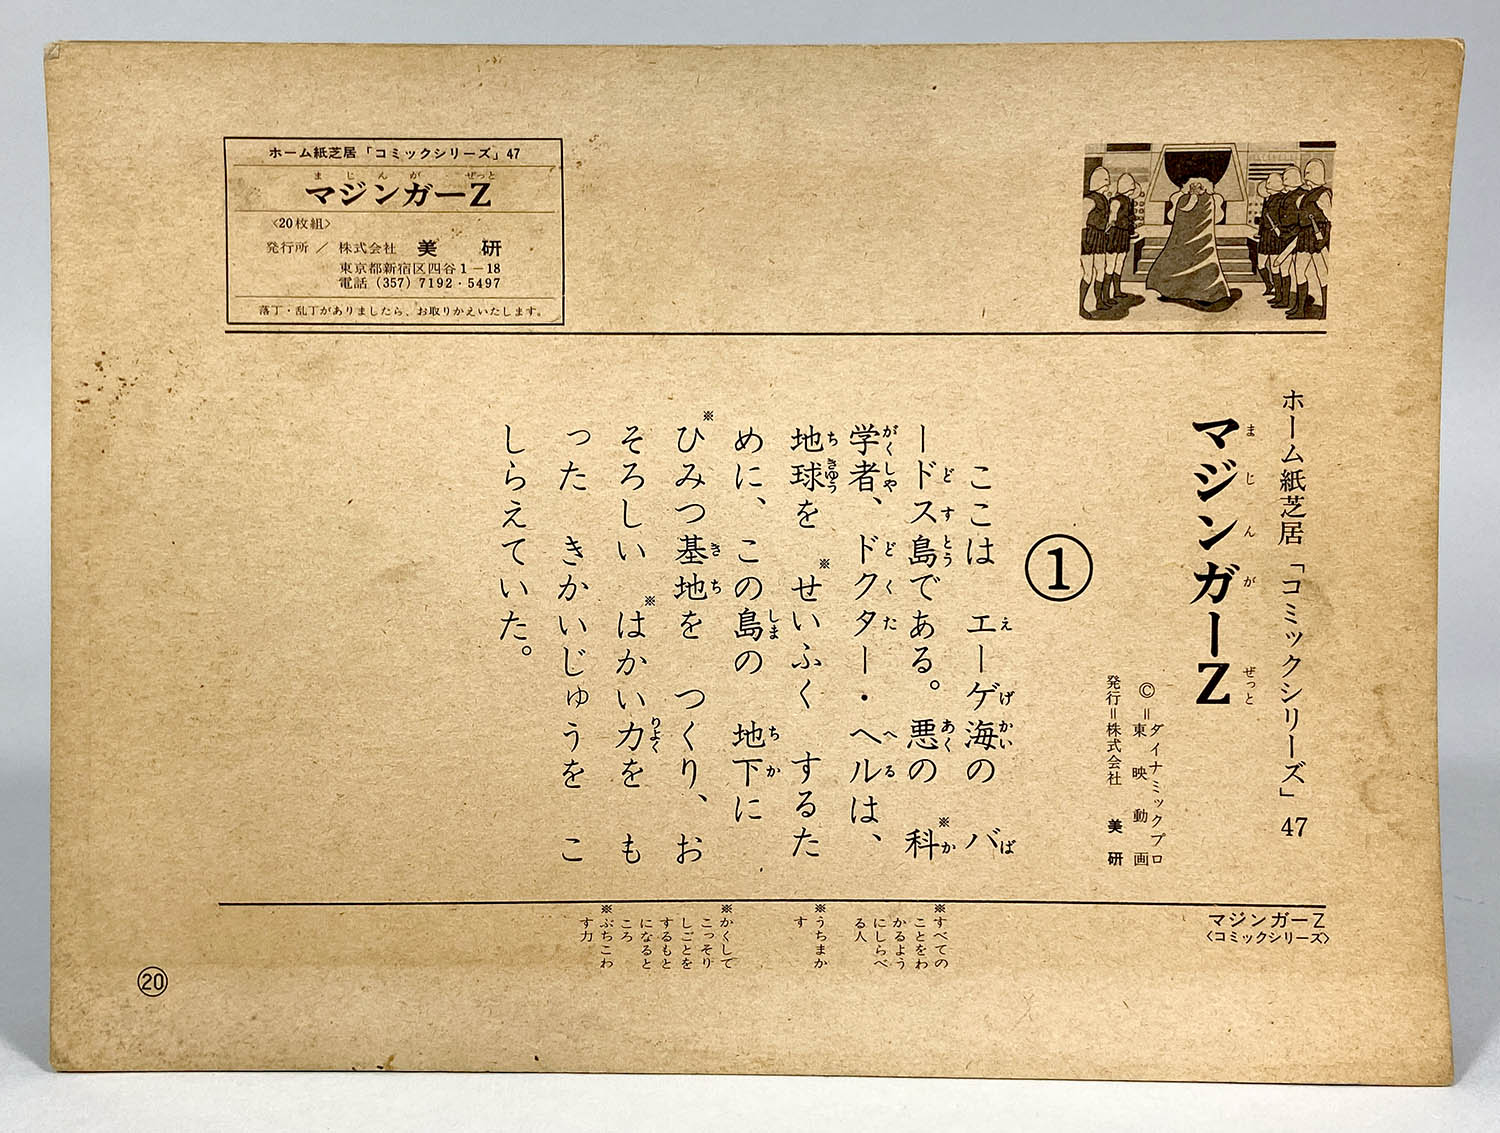 ホーム紙芝居「コミックシリーズ」47
まじんがーぜっと
マジンガーZ
〈20枚組〉
発行所/株式会社 美研
東京都新宿区四谷1-18
電話(357)7192・5497
落丁・乱丁がありましたら、お取りかえいたします。
ホーム紙芝居「コミックシリーズ」47
まじんがぜっと
マジンガーZ
©=ダイナミックプロ
東映動画
発行=株式会社 美研
①
ここは エーゲ海の バ
ードス島である。悪の ※科
学者、ドクター・ヘルは、
地球を ※せいふく するた
めに、この島の 地下に
※ひみつ基地を つくり、お
そろしい ※はかい力を も
った きかいじゅうを こ
しらえていた。
マジンガーZ
〈コミックシリーズ〉
※すべての
ことをわ
かるよう
にしらべ
る人
※うちまか
す
※かくして
こっそり
しごとを
するもと
になると
ころ
※ぶちこわ
す力
⑳